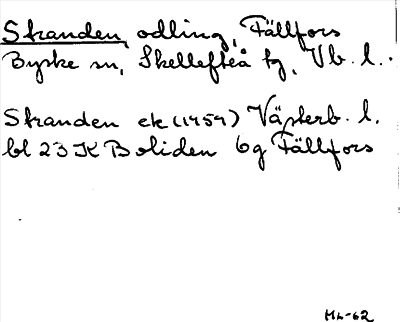 Stranden, odling, Fällfors
Byske sn, Skellefteå tg, Vb. l.
Stranden ek (1959) Västerb. l.
bl 23 K Boliden 6g Fällfors